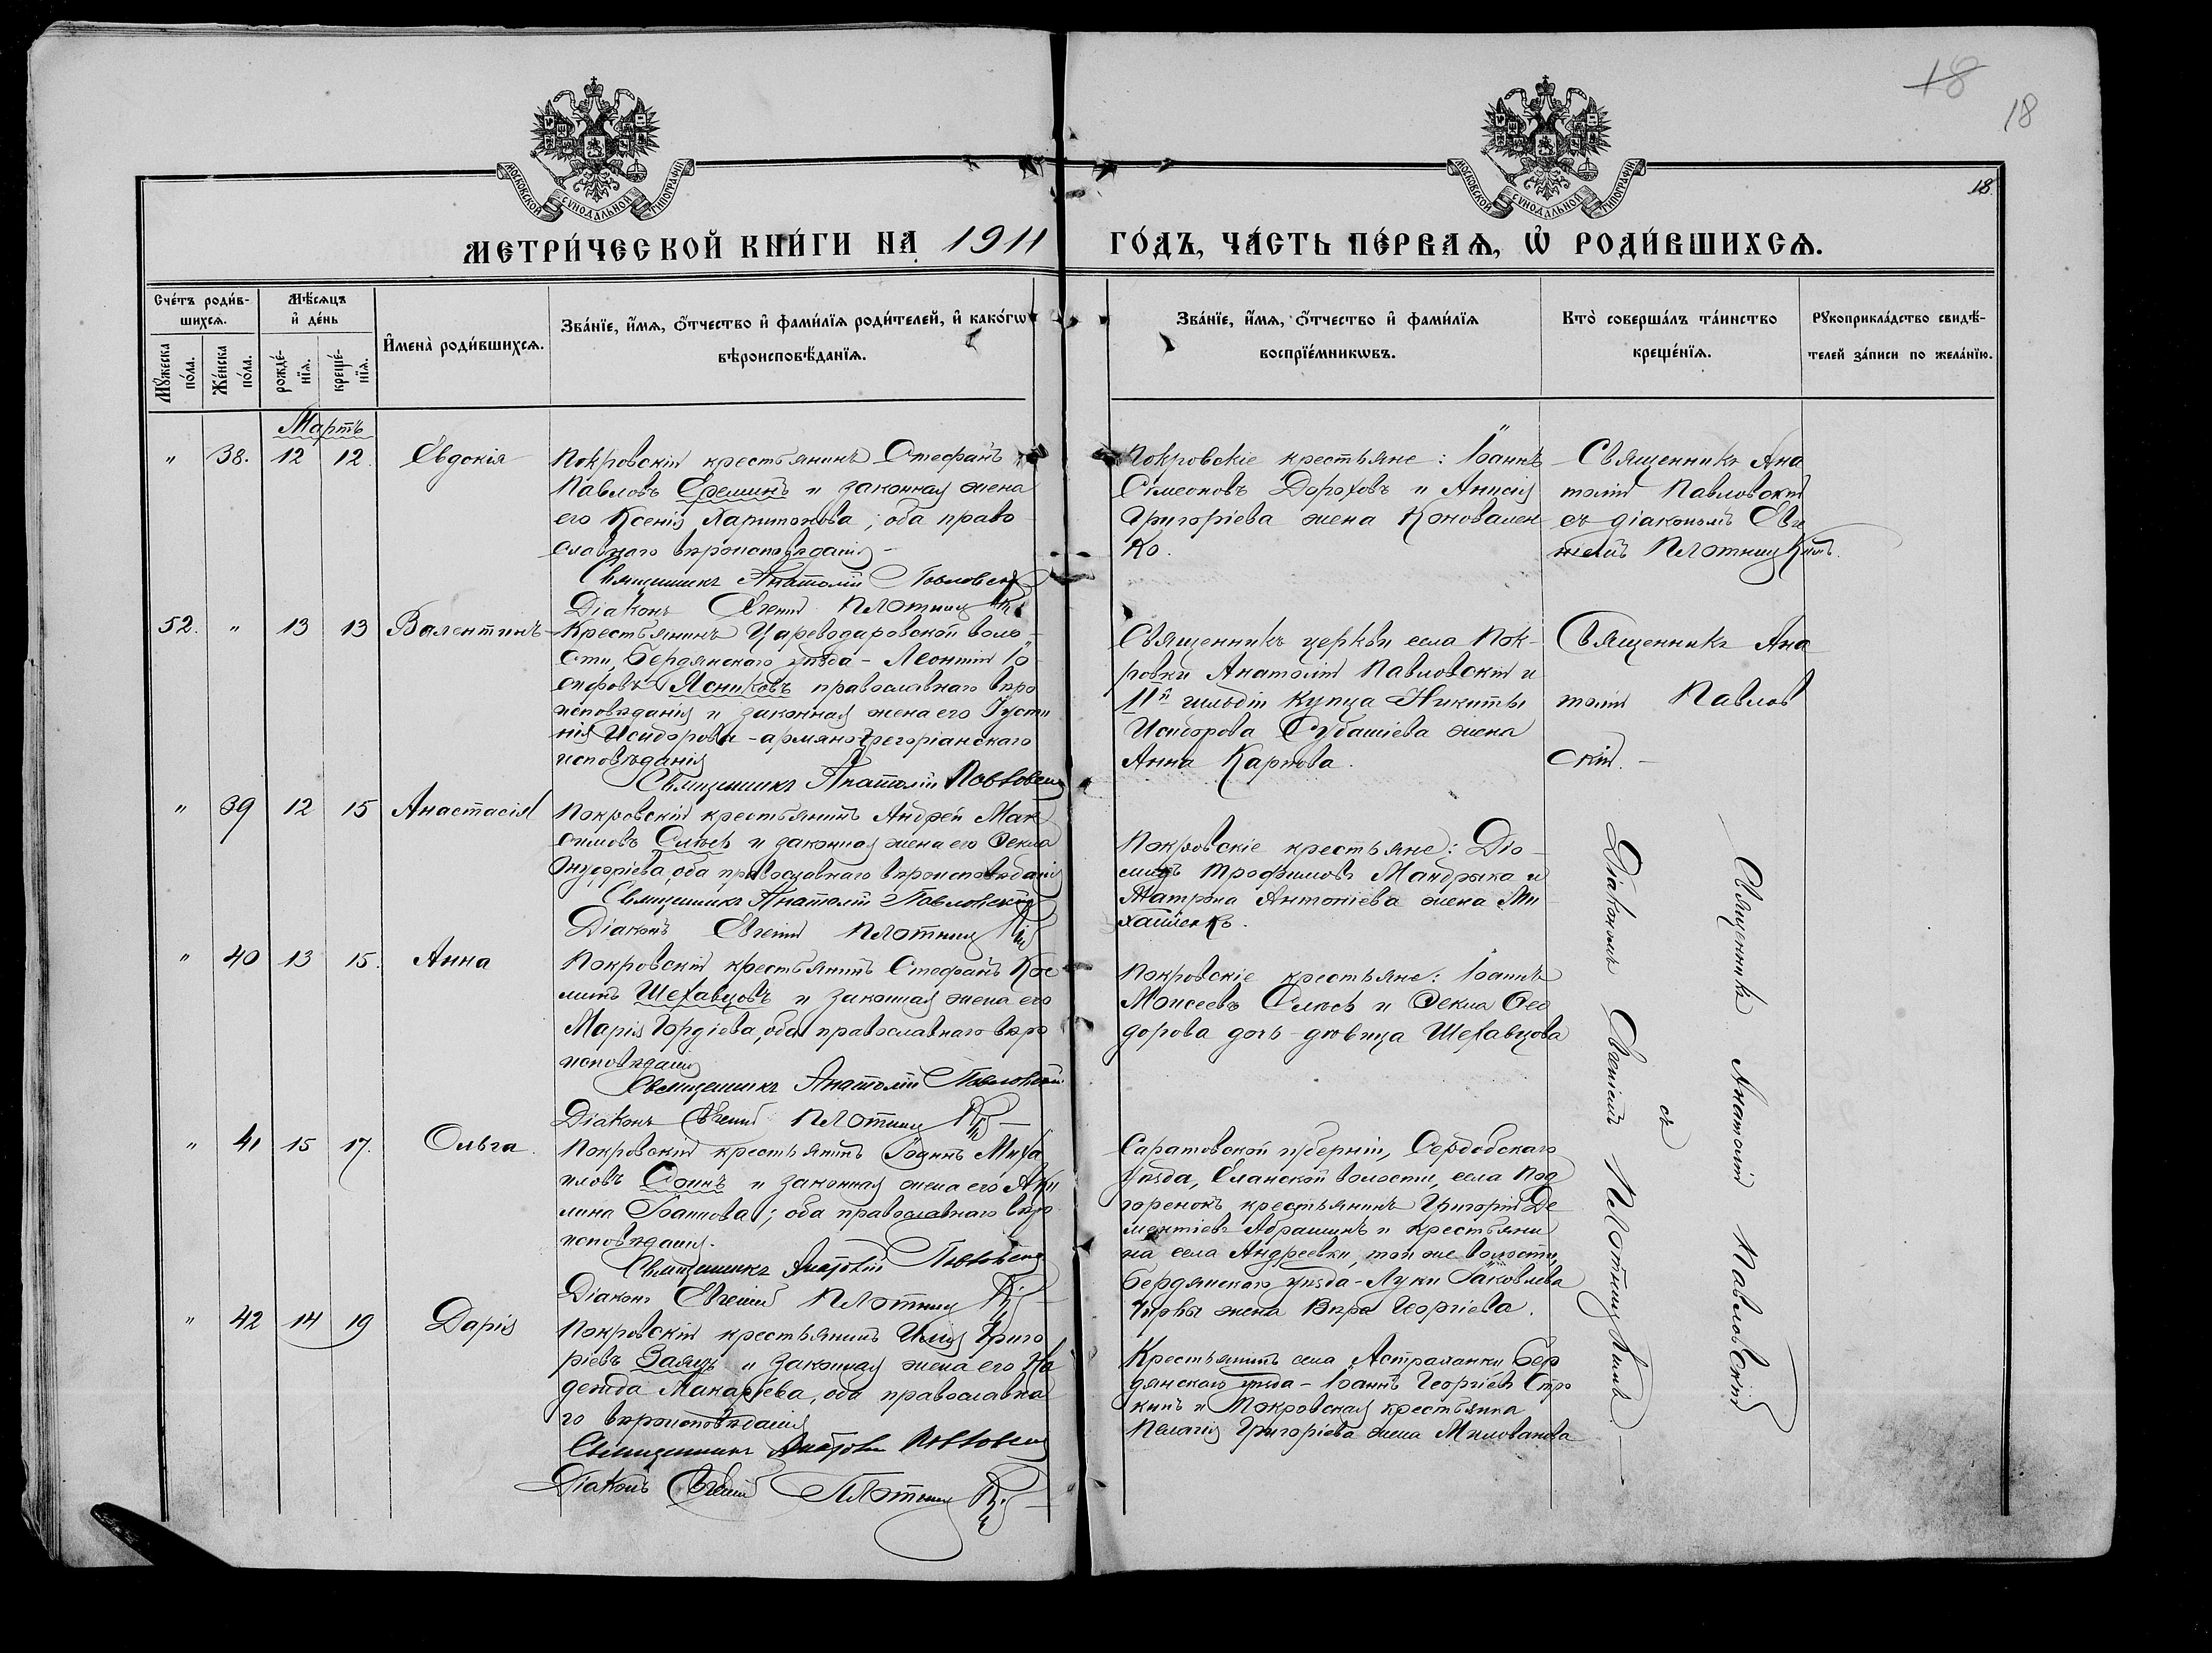 18
18
18.
МОСКОВСКОЙ СѴНОДАЛЬНОЙ ТИПОГРАФІИ
МОСКОВСКОЙ СѴНОДАЛЬНОЙ ТИПОГРАФІИ
МЕТРИ́ЧЕСКОЙ КНИ́ГИ НА 1911 ГО́ДЪ, ЧА́СТЬ ПЕ́РВАѦ, Ѽ РОДИ́ВШИХСѦ.
Сче́тъ роди́в-
шихсѧ.
Мꙋ́жеска
по́ла.
Же́нска
по́ла.
Мѣ́сѧцъ
и҆ де́нь
рожде́-
нїѧ.
креще́-
нїѧ.
И҆мена̀ роди́вшихсѧ.
Зва́нїе, и҆́мѧ, ѻ҆́тчество и҆ фами́лїѧ роди́телей, и҆ како́гѡ
вѣроисповѣ́данїѧ.
Зва́нїе, и҆́мѧ, ѻ҆́тчество и҆ фами́лїѧ
воспрїе́мникѡвъ.
Кто̀ соверша́лъ та́инство
креще́нїѧ.
Рꙋкоприкла́дство свидѣ́-
телей за́писи по жела́нїю.
Мартъ
" 38. 12 12. Евдокія
Покровскій крестьянинъ Стефанъ
Павловъ Еремин и законная жена
его Ксенія Харитонова; оба право
славнаго вѣроисповѣданія –
Священникъ Анатолій Павловскій
Діаконъ Евгеній Плотницкій
Покровскіе крестьяне: Іоаннъ
Сѵмеоновъ Дороховъ и Анисія
Григоріева жена Коновален
ко.
Священникъ Ана
толій Павловскій
съ діакономъ Евге
ніемъ Плотницкимъ.
52. " 13 13 Валентинъ
Крестьянинъ Цареводаровской воло
сти, Бердянскаго уѣзда – Леонтій Іо
сифовъ Ясниковъ православнаго вѣро
исповѣданія и законная жена его Іусти
нія Исидорова – армяно-грегоріанскаго
исповѣданія
Священникъ Анатолій Павловскій
Священникъ церкви села Пок-
ровки Анатолій Павловскій и
II й гильдіи купца Никиты
Исидорова Субашіева жена
Анна Карпова.
Священникъ Ана
толій Павлов
скій. –
" 39 12 15 Анастасія
Покровскій крестьянинъ Андрей Мак
симовъ Слюсь и законная жена его Ѳекла
Онуфріева, оба православнаго вѣроисповѣданія
Священникъ Анатолій Павловскій
Діаконъ Евгеній Плотницкій
Покровскіе крестьяне: Діо
мидъ Трофимовъ Мандрыка и
Матрона Антоніева жена Ми
хайленко.
" 40 13 15. Анна
Покровскій крестьянинъ Стефанъ Кос
минъ Шехавцовъ и законная жена его
Марія Гордіева, оба православнаго вѣро
исповѣданія
Священникъ Анатолій Павловскій
Діаконъ Евгеній Плотницкій –
Покровскіе крестьяне: Іоаннъ
Моисеевъ Слюсь и Ѳекла Ѳео
дорова дочь-дѣвица Шехавцова
" 41 15 17. Ольга.
Покровскій крестьянинъ Іоаннъ Миха
иловъ и законная жена его Аки
лина Іоаннова; оба православнаго вѣро
исповѣданія.
Священникъ Анатолій Павловскій
Діаконъ Евгеній Плотницкій –
Саратовской губерніи, Сердобскаго
уѣзда, Еланской волости, села Под
горенокъ крестьянинъ Григорій Де
ментіевъ Абрашинъ и крестьяни
на села Андреевки, той же волости,
Бердянскаго уѣзда – Луки Іаковлева
жена Вѣра Георгіева.
" 42 14 19 Дарія
Покровскій крестьянинъ Илія Григо
ріевъ Заяцъ и законная жена его На
дежда Макаріева, оба православна
го вѣроисповѣданія
Священникъ Анатолій Павловскій
Діаконъ Евгеній Плотницкій –
Крестьянинъ села Астраханки Бер
дянскаго уѣзда – Іоаннъ Георгіевъ Стро
кинъ и Покровская крестьянка
Пелагія Григоріева жена Милованова
Священникъ Анатолій Павловскій
съ
Діакономъ Евгеніемъ Плотницкимъ. –